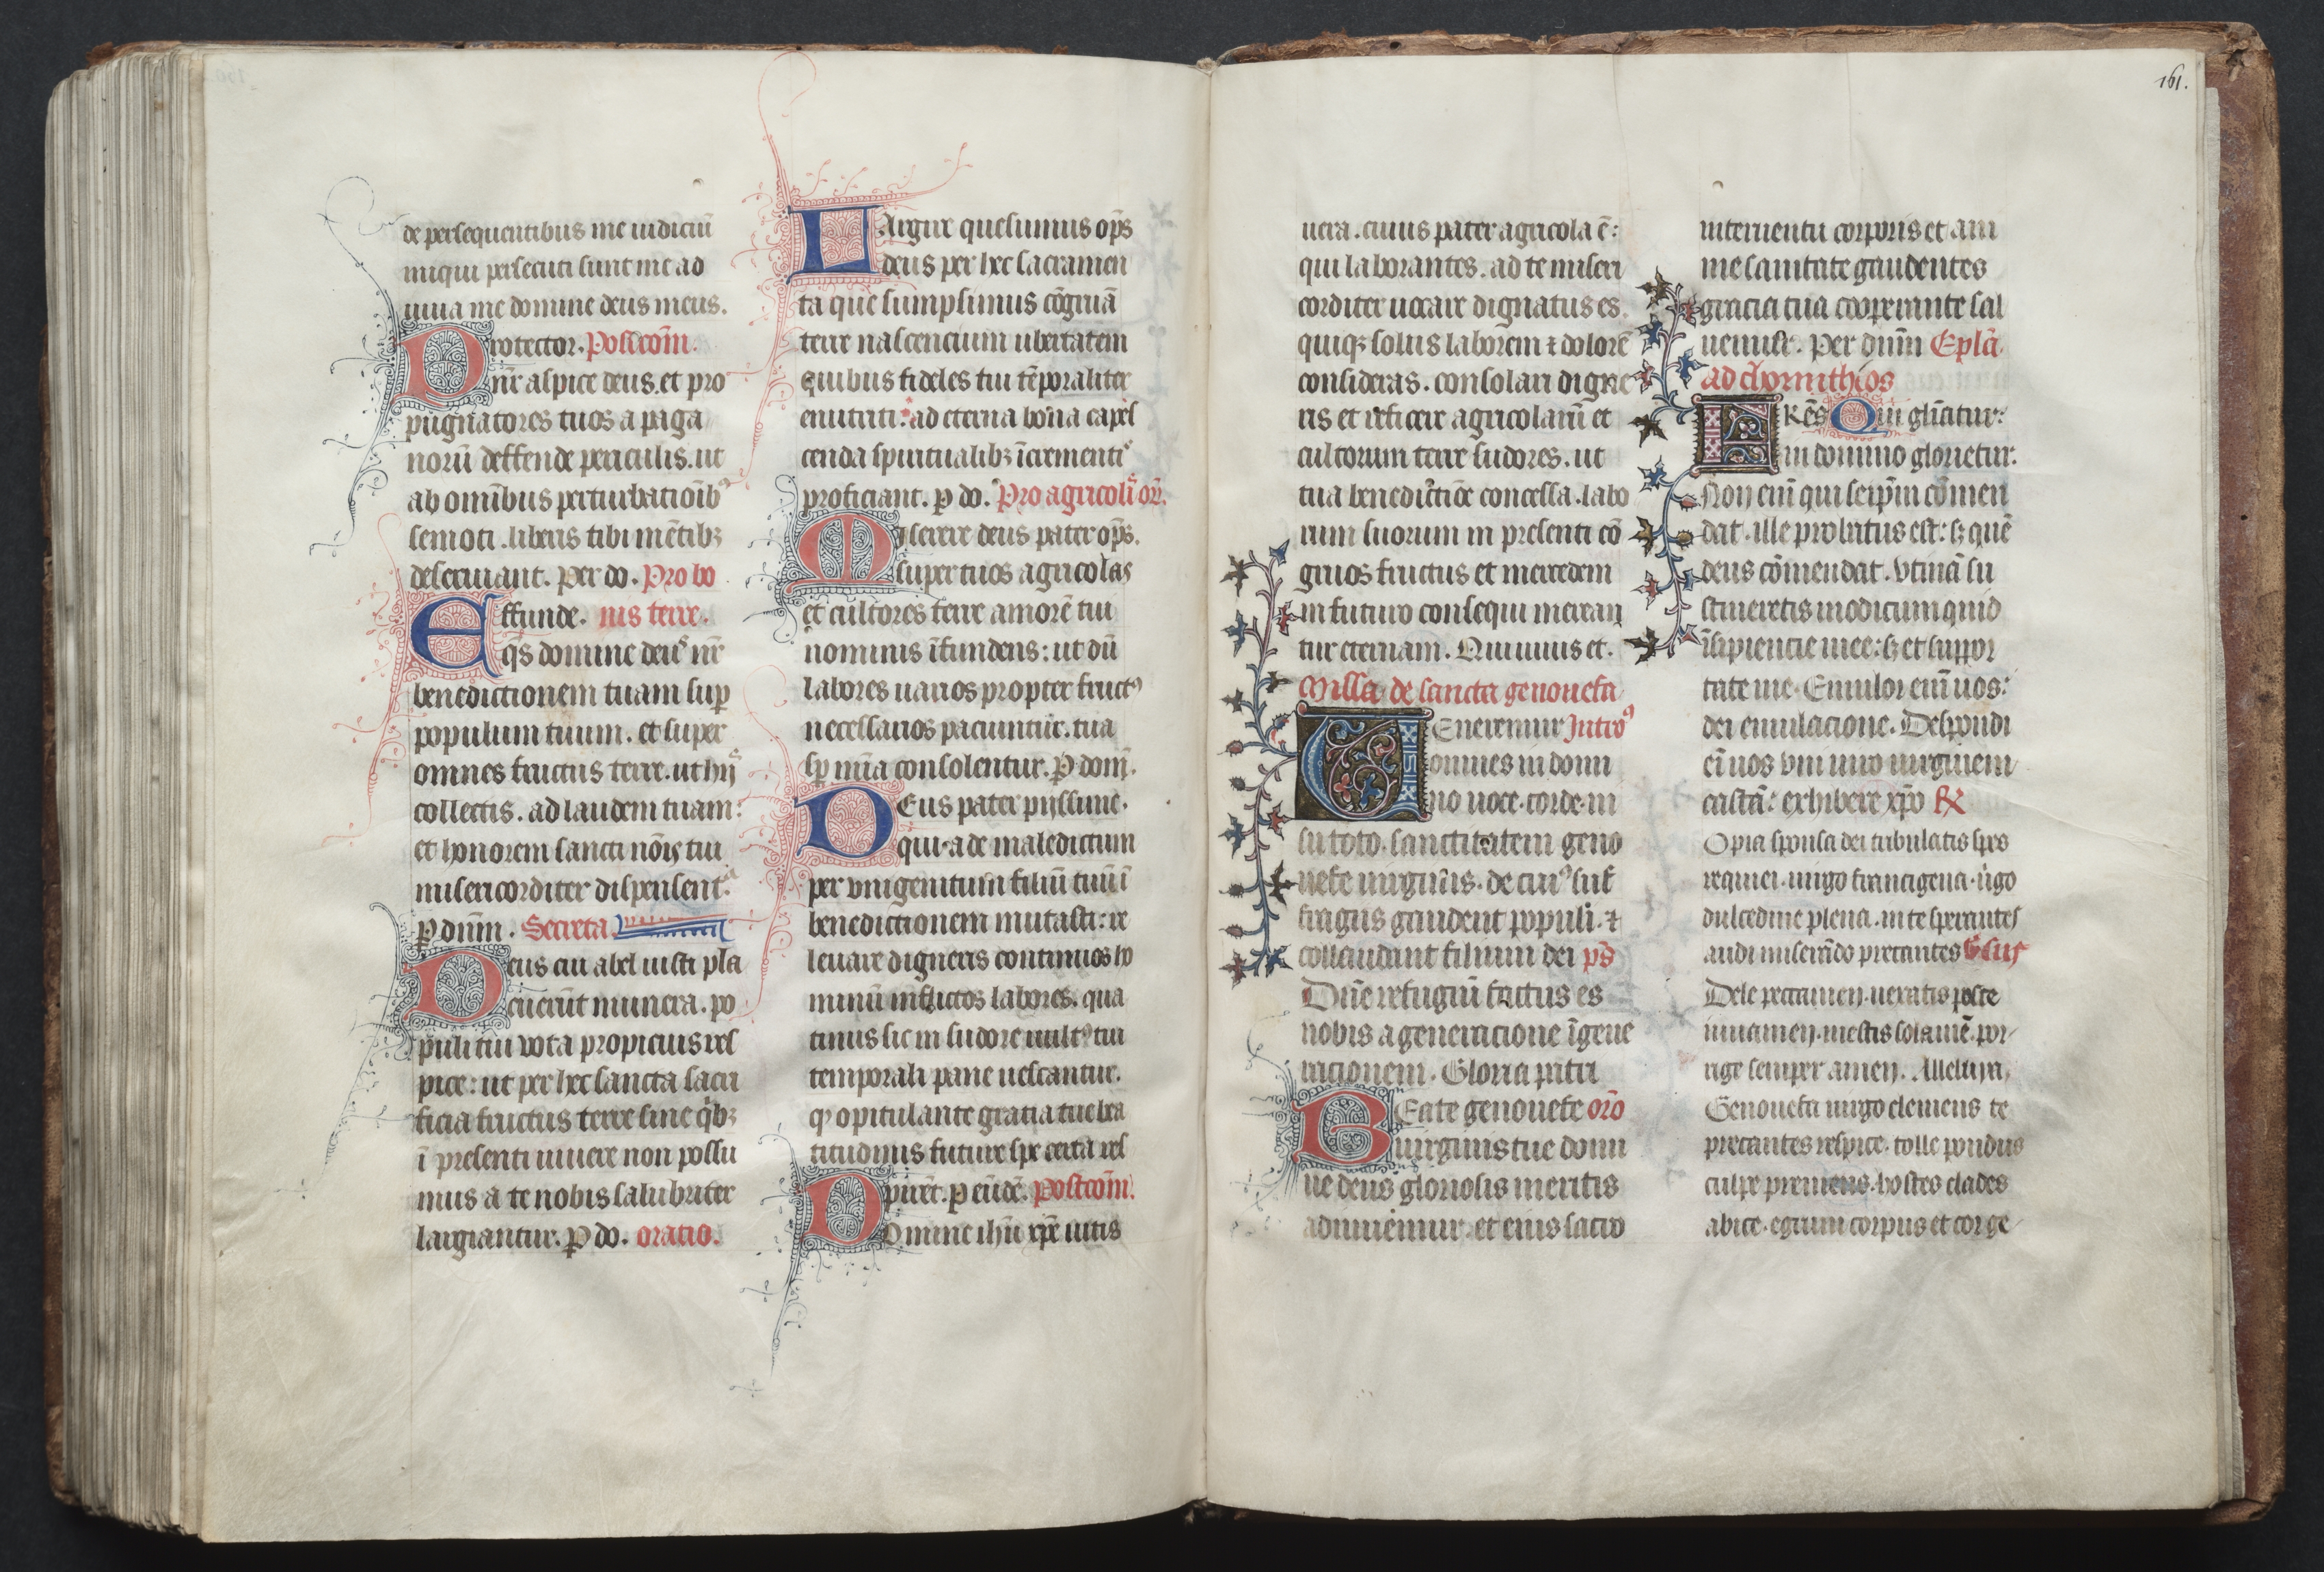 de persequentibus me iudiciū
iniqui persecuti sunt me ad
iuua me domine deus meus.
Protector. Postcōm.
nr̄ aspice deus. et pro
pugnatores tuos a paga
norū deffende periculis. ut
ab omībus perturbatioībꝰ
semoti. liberis tibi mētibꝫ
deseruiant. Per do. Pro bo
Effunde. nis terre.
q̄s domine deuˢ nr̄
benedictionem tuam suꝑ
populum tuum. et super
omnes fructus terre. ut hijˢ
collectis. ad laudem tuam:
et honorem sancti nōīs tui
misericorditer dispensentᵃ.
ꝑ dūm. Secreta
Deus cui abel iusti pla
cuerūt munera. po
puli tui vota propicius res
pice: ut per hec sancta sacri
ficia fructus terre sine qͥbꝫ
ī presenti uiuere non possu
mus a te nobis salubriter
largiantur. ꝑ do. oratio.
Largire quesumus op̄s
deus per hec sacramen
ta que sumpsimus cōgruā
terre nascencium ubertatem
quibus fideles tui tēporaliter
enutriti: ad eterna bona capes
cenda spiritualibꝫ īcrementiˢ
proficiant. ꝑ do. Pro agricoliˢ or̄.
Miserere deus pater op̄s.
super tuos agricolas
et cultores terre amorē tui
nominis īfundens: ut dū
labores uarios propter fructꝰ
necessarios paciuntur. tua
sꝑ mīa consolentur. ꝑ domī.
Deus pater pijssime.
qui ade maledictum
per vnigenitum filiū tuū ī
benedictionem mutasti: re
leuare digneris continuos ho
minū inflictos labores. qua
tinus sic in sudore uultꝰ tui
temporali pane uescantur.
qͦ opitulante gratia tue bea
titudinis future spe certa res
pirēt. ꝑ eūdē. Postcōm.
Domine ihū xp̄e uitis
uera. cuius pater agricola ē:
qui laborantes. ad te miseri
corditer uocare dignatus es.
quiqꝫ solus laborem ⁊ dolorē
consideras. consolari digne
ris et reficere agricolarū et
cultorum terre sudores. ut
tua benedictiōe concessa. labo
rum suorum in presenti cō
gruos fructus et mercedem
in futuro consequi merean
tur eternam. Qui uiuis et.
Missa de sancta genouefa
Veneremur Introꝰ
omnes in domi
no uoce. corde. in
su toto. sanctitatem geno
uefe uirginis. de cuiꝰ suf
fragiis gaudent populi. ⁊
collaudant filium dei ps̄
Dn̄e refugiū factus es
nobis a generacione ī gene
racionem. Gloria patri
Beate genouefe orō
uirginis tue domi
ne deus gloriosis meritis
adiuuemur. et eius sacro
interuentu corporis et ani
me sanitate gaudentes
gracia tua cooperante sal
uemur. Per dnm̄ Epl̄a.
ad chornithios
Fr̄es Qui gl̄iatur:
in domino glorietur.
Non enī qui seip̄m cōmen
dat. ille probatus est: sꝫ quē
deus cōmendat. Vtinā su
stineretis modicum quid
īsipiencie mee: sꝫ et suppor
tate me. Emulor enī uos:
dei emulacione. Despondi
eī uos vni uiro uirginem
castā: exhibere xp̄o ℟
O pia sponsa dei tribulatis spes
requiei. uirgo francigena. uͥgo
dulcedine plena. in te sperantes
audi miserādo precantes v̄sus
Dele peccamen. uexatis posce
iuuamen. mestis solamē. por
rige semper amen. Alleluya.
Genouefa uirgo clemens te
precantes respice. tolle pondus
culpe premens. hostes clades
abice. egrum corpus et cor ge
161.